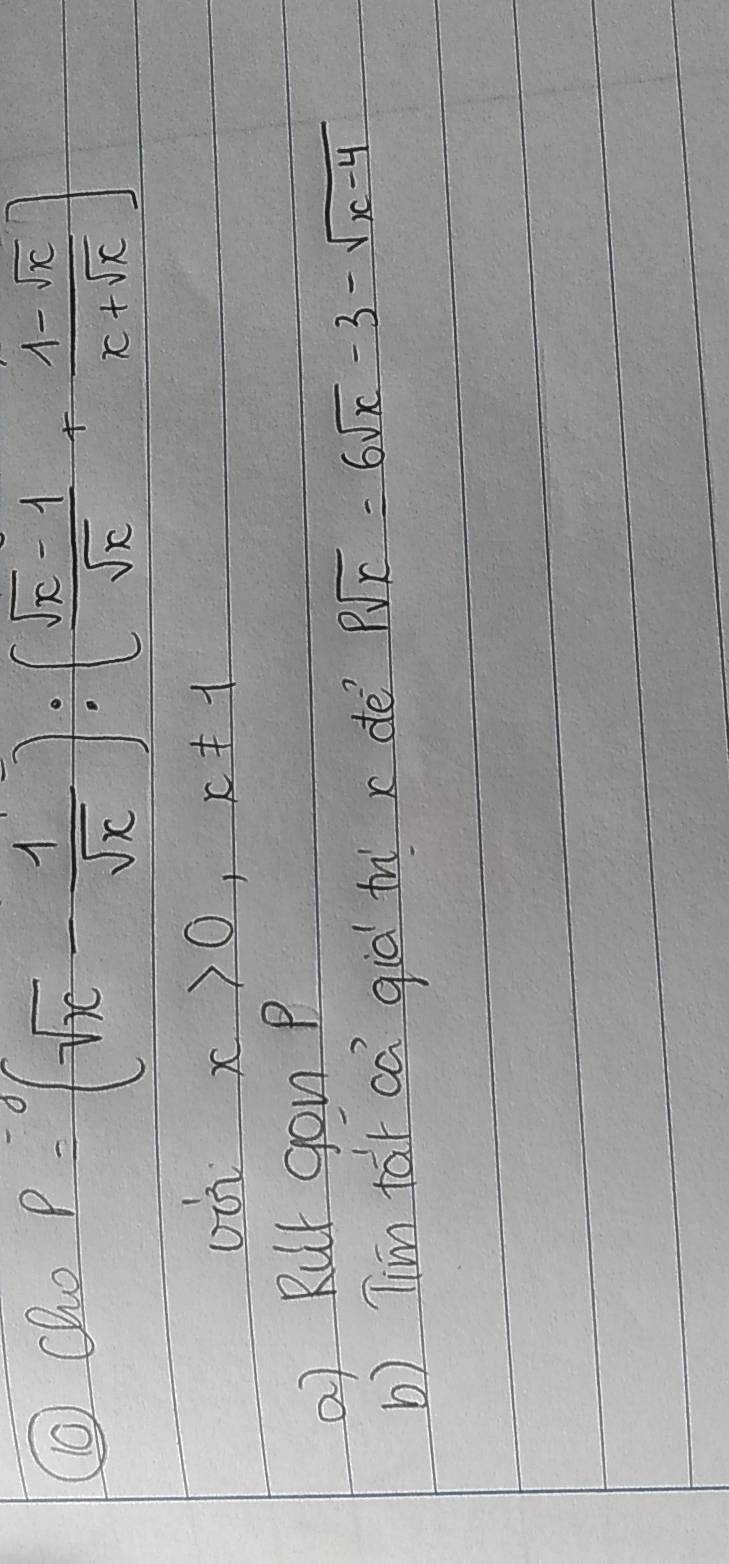 10 Cho P = (√x - 1/√x) : ((√x - 1)/√x + (1 - √x)/(x + √x))
với x > 0, x ≠ 1
a) Rút gọn P
b) Tìm tất cả giá trị x để P√x = 6√x - 3 - √(x - 4)